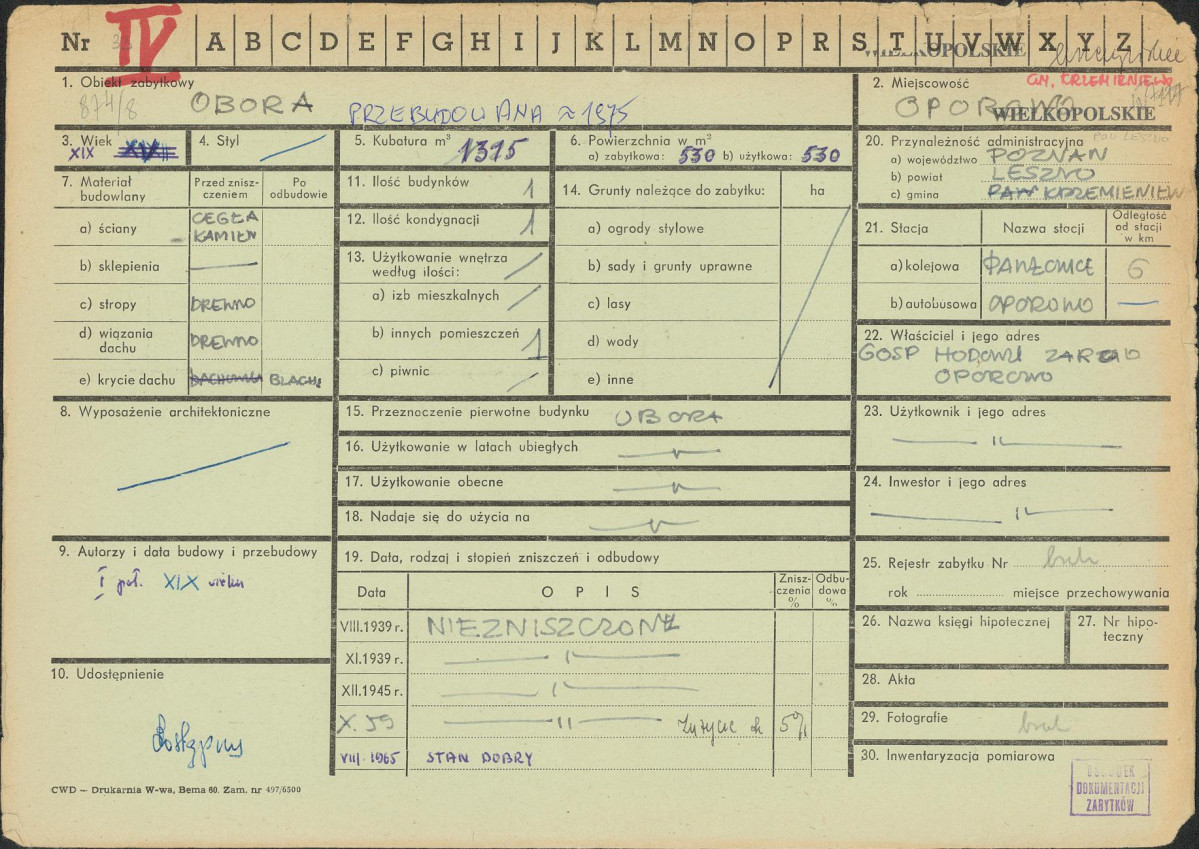 Nr IV A B C D E F G H I J K L M N O P R S T U V W X Y Z
WIELKOPOLSKIE
1. Obiekt zabytkowy
874/8 OBORA PRZEBUDOWANA ≈ 1975
2. Miejscowość
GM. KRZEMIENIEWO
OPOROWO
WIELKOPOLSKIE
3. Wiek
XIX XVIII
4. Styl
5. Kubatura m³ 1315
6. Powierzchnia w m³
a) zabytkowa: 530 b) użytkowa: 530
7. Materiał budowlany
Przed znisz-
czeniem
Po
odbudowie
a) ściany CEGŁA
KAMIEŃ
b) sklepienia
c) stropy DREWNO
d) wiązania
dachu DREWNO
e) krycie dachu DACHÓWKA BLACHA
8. Wyposażenie architektoniczne
9. Autorzy i data budowy i przebudowy
I poł. XIX wieku
10. Udostępnienie
dostępny
CWD – Drukarnia W-wa, Bema 60. Zam. nr 497/6500
11. Ilość budynków 1
12. Ilość kondygnacji 1
13. Użytkowanie wnętrza
według ilości:
a) izb mieszkalnych
b) innych pomieszczeń 1
c) piwnic
14. Grunty należące do zabytku: ha
a) ogrody stylowe
b) sady i grunty uprawne
c) lasy
d) wody
e) inne
15. Przeznoczenie pierwotne budynku OBORA
16. Użytkowanie w latach ubiegłych —〃—
17. Użytkowanie obecne —〃—
18. Nadaje się do użycia na —〃—
19. Data, rodzaj i stopień zniszczeń i odbudowy
Data
OPIS
Znisz-
czenia
%
Odbu-
dowa
%
VIII.1939 r. NIEZNISZCZONE
XI.1939 r. —〃—
XII.1945 r. —〃—
X.59 —〃— Zużycie ok 5%
VIII.1965 STAN DOBRY
20. Przynależność administracyjna
a) województwo POZNAŃ
b) powiat LESZNO
c) gmina PAW KRZEMIENIEW
21. Stacja
Nazwa stocji
Odległość
od stacji
w km
a) kolejowa GARZCMCE 6
b) autobusowa OPOROWO —
22. Właściciel i jego adres
GOSP HODOWLI ZARZĄD
OPOROWO
23. Użytkownik i jego adres
—〃—
24. Inwestor i jego adres
—〃—
25. Rejestr zabytku Nr brak
rok miejsce przechowywania
26. Nazwa księgi hipotecznej
27. Nr hipo-
teczny
28. Akta
29. Fotografie brak
30. Inwentaryzacja pomiarowa
OŚRODEK
DOKUMENTACJI
ZABYTKÓW